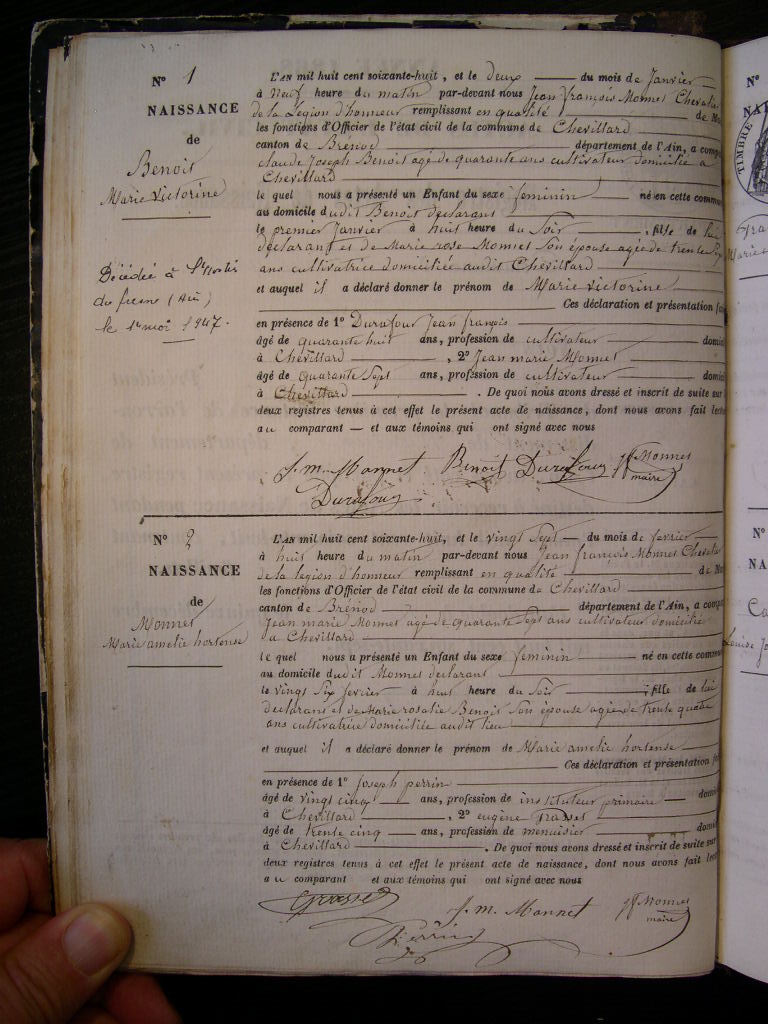 N° 1
NAISSANCE
de
Benoit
Marie Victorine
Décédée à St
du fresne (Ain)
le 1er mai 1947.
L'AN mil huit cent soixante-huit, et le deux du mois de Janvier
à Neuf heure du matin par-devant nous Jean françois Monnet Chevalier
de la Legion d'honneur remplissant en qualité de M
les fonctions d'Officier de l'état civil de la commune de Chevillard
canton de Brenod département de l'Ain, a comp
claude Joseph Benoit agé de quarante ans cultivateur domicilié a
Chevillard
le quel nous a présenté un Enfant du sexe feminin né en cette commu
au domicile dudit Benoit declarant
le premier Janvier à huit heure du Soir , fille de lui
declarant et de Marie rose Monnet Son épouse agée de trente Sept
ans cultivatrice domiciliée audit Chevillard
et auquel il a déclaré donner le prénom de Marie Victorine
Ces déclaration et présentation fa
en présence de 1° Durafour Jean françois
âgé de quarante huit ans, profession de cultivateur domi
à Chevillard , 2° Jean marie Monnet
âgé de quarante Sept ans, profession de cultivateur domi
à Chevillard . De quoi nous avons dressé et inscrit de suite sur
deux registres tenus à cet effet le présent acte de naissance, dont nous avons fait lect
au comparant et aux témoins qui ont signé avec nous
J. m. Monnet Benoit Durafour Jf Monnet
maire
Durafour
N° 2
NAISSANCE
de
Monnet
Marie amelie hortense
L'AN mil huit cent soixante-huit, et le vingt Sept du mois de fevrier
à huit heure du matin par-devant nous Jean françois Monnet Chevalier
de la legion d'honneur remplissant en qualité de M
les fonctions d'Officier de l'état civil de la commune de Chevillard
canton de Brenod département de l'Ain, a comp
Jean marie Monnet agé de quarante Sept ans cultivateur domicilié
a Chevillard
le quel nous a présenté un Enfant du sexe feminin né en cette commu
au domicile dudit Monnet declarant
le vingt Six fevrier à huit heure du Soir , fille de lui
declarant et de Marie rosalie Benoit Son épouse agée de trente quatre
ans cultivatrice domiciliée audit lieu
et auquel il a déclaré donner le prénom de Marie amelie hortense
Ces déclaration et présentation fa
en présence de 1° Joseph perrin
âgé de vingt cinq ans, profession de instituteur primaire domi
à Chevillard , 2° eugène
âgé de trente cinq ans, profession de menuisier domi
à Chevillard . De quoi nous avons dressé et inscrit de suite sur
deux registres tenus à cet effet le présent acte de naissance, dont nous avons fait lect
au comparant et aux témoins qui ont signé avec nous
J. m. Monnet Jf Monnet
maire
Perrin
N°
NA
TIMBRE
N°
NA